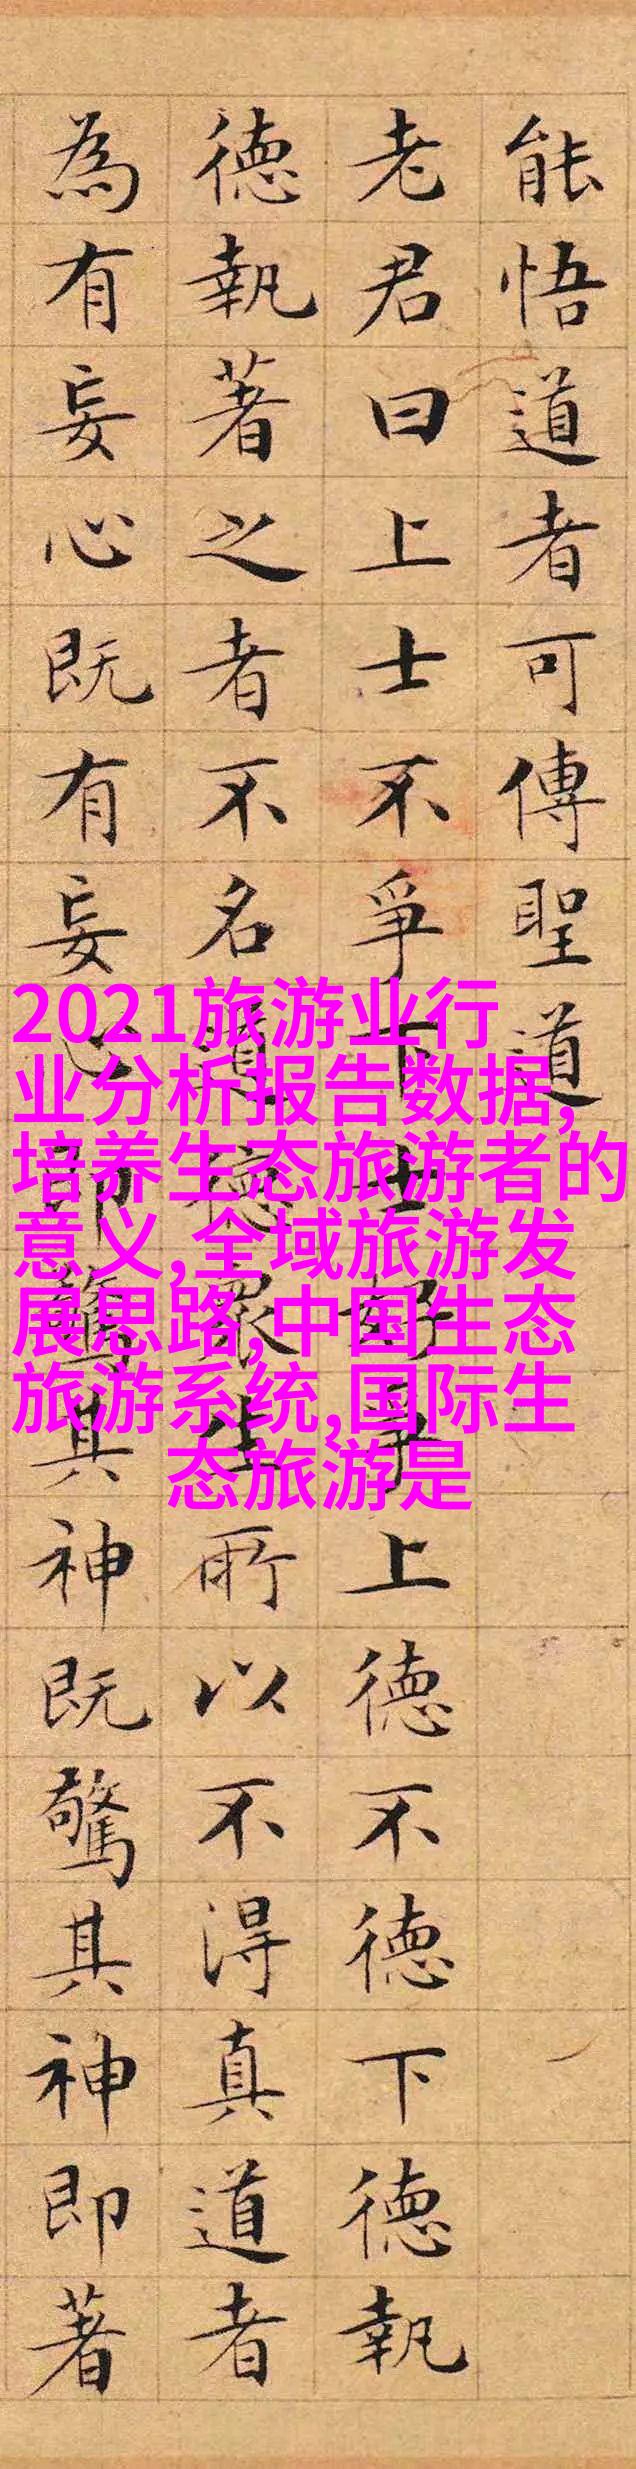 能悟道者可傳聖道
老君曰上士不爭下士好爭上德不德下德執
德執著之者不名道德眾生所以不得真道者
為有妄心既有妄心即驚其神既驚其神即著
2021旅游业行
业分析报告数据,
培养生态旅游者的
意义,全域旅游发
展思路,中国生态
旅游系统,国际生
态旅游是